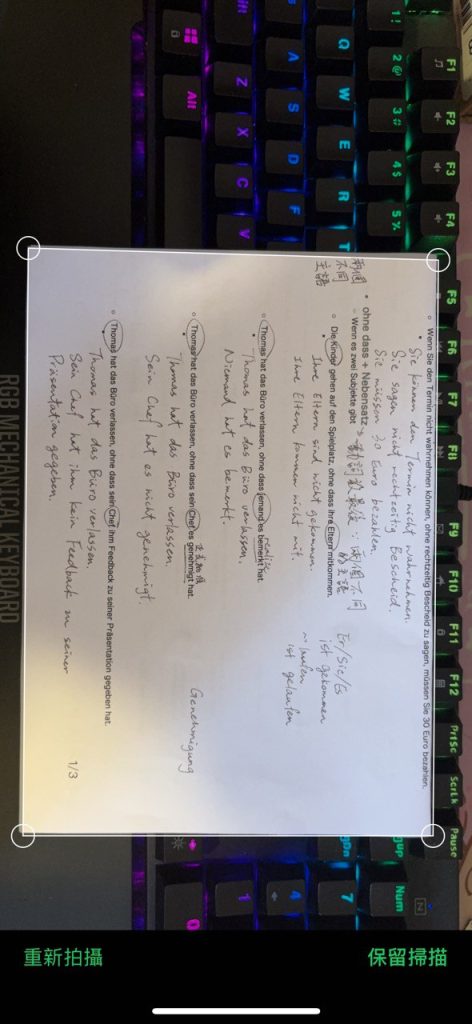 ○ Wenn Sie den Termin nicht wahrnehmen können, ohne rechtzeitig Bescheid zu sagen, müssen Sie 30 Euro bezahlen.
Sie können den Termin nicht wahrnehmen.
Sie sagen nicht rechtzeitig Bescheid.
Sie müssen 30 Euro bezahlen.
• ohne dass + Nebensatz
○ Wenn es zwei Subjekte gibt
兩個
不同
主語
兩個不同
的主語
○ Die Kinder gehen auf den Spielplatz, ohne dass ihre Eltern mitkommen.
Ihre Eltern sind nicht gekommen.
Ihre Eltern kommen nicht mit.
Er/Sie/Es
ist gekommen
laufen
ist gelaufen
○ Thomas hat das Büro verlassen, ohne dass jemand es bemerkt hat.
realize
Thomas hat das Büro verlassen.
Niemand hat es bemerkt.
○ Thomas hat das Büro verlassen, ohne dass sein Chef es genehmigt hat.
Thomas hat das Büro verlassen.
Sein Chef hat es nicht genehmigt.
Genehmigung
○ Thomas hat das Büro verlassen, ohne dass sein Chef ihm Feedback zu seiner Präsentation gegeben hat.
Thomas hat das Büro verlassen.
Sein Chef hat ihm kein Feedback zu seiner
Präsentation gegeben.
1/3
F1
F2
F3
F4
F5
F6
F7
F8
F9
F10
F11
F12
PrtSc
ScrLk
Pause
1!
2@
3#
4$
5%
Q
W
E
R
T
A
S
D
F
Z
X
C
V
Alt
Num
7
4
1
0
重新拍攝
保留掃描